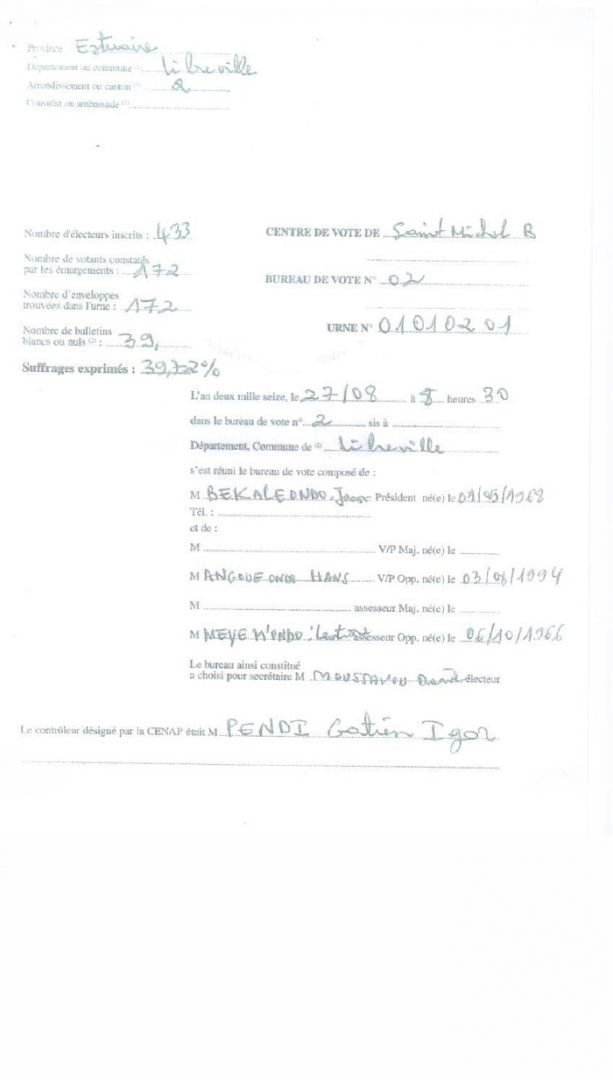 Province Estuaire
Département ou commune (1) Libreville
Arrondissement ou canton (1) 2
Consulat ou ambassade (1)
Nombre d'électeurs inscrits : 433
CENTRE DE VOTE DE Saint Michel B
Nombre de votants constatés
par les émargements : 172
BUREAU DE VOTE N° 02
Nombre d'enveloppes
trouvées dans l'urne : 172
URNE N° 01010201
Nombre de bulletins
blancs ou nuls (2) : 39,
Suffrages exprimés : 39,72%
L'an deux mille seize, le 27/08 à 8 heures 30
dans le bureau de vote n° 2 sis à
Département, Commune de (2) Libreville
s'est réuni le bureau de vote composé de :
M BEKALE ONDO Président né(e) le 1968
Tél. :
et de :
M V/P Maj. né(e) le
M ANGOUE ONDO HANS V/P Opp. né(e) le 03/08/1994
M assesseur Maj. né(e) le
M MEYE N'ONDO assesseur Opp. né(e) le 06/10/1966
Le bureau ainsi constitué
a choisi pour secrétaire M MOUSSAVOU électeur
Le contrôleur désigné par la CENAP était M PENDI Gatien Igor